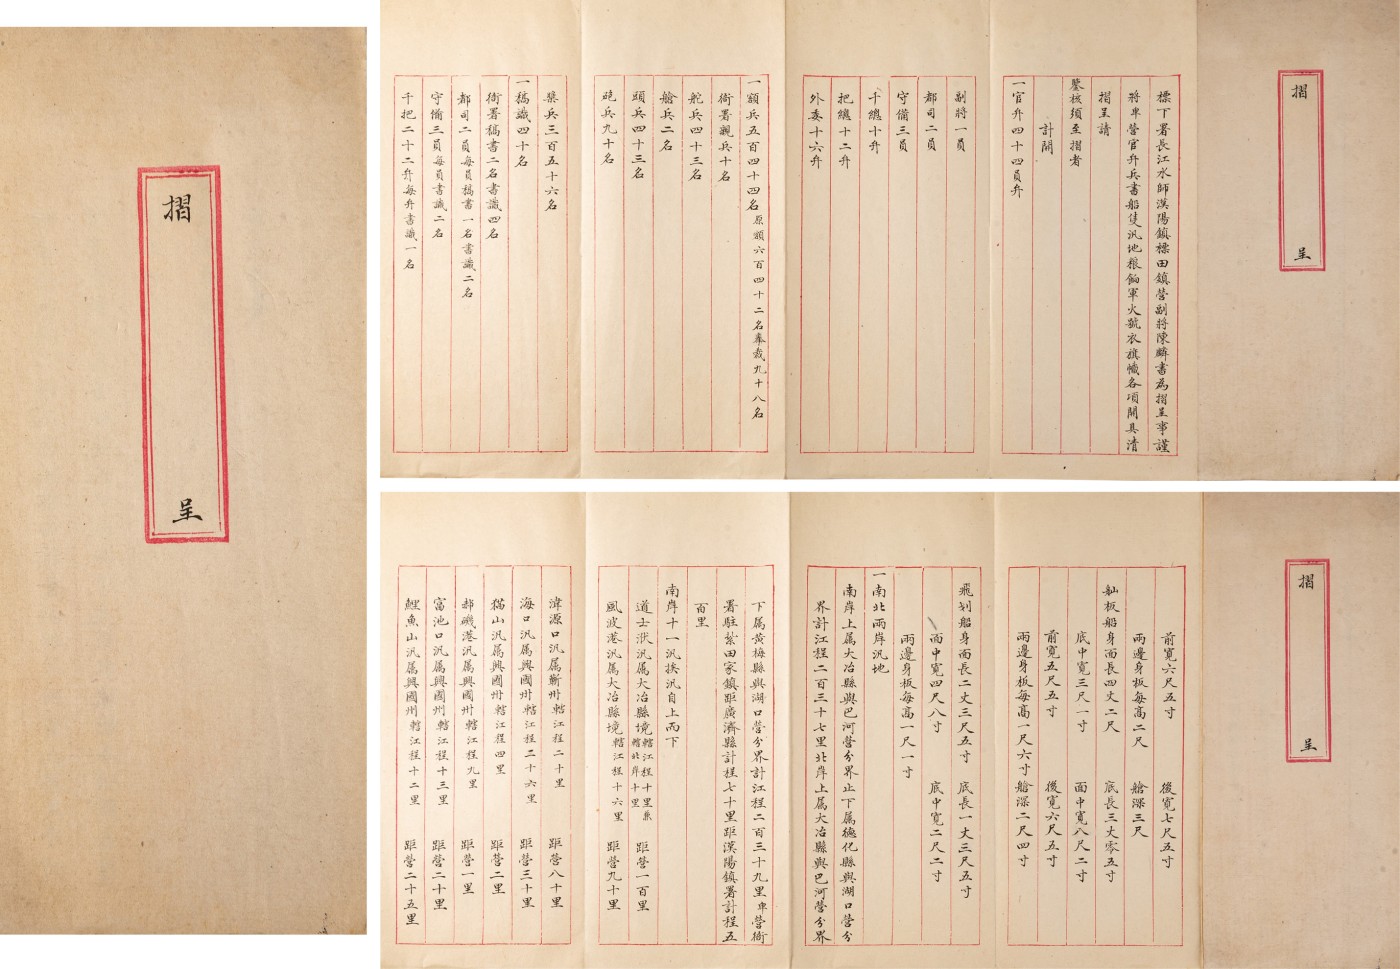 摺呈
摺呈
標下署長江水師漢陽鎮標田鎮營副將陳麟書為摺呈事謹
將卑營官弁兵書船隻汛地糧餉軍火號衣旗幟各項開具清
摺呈請
鑒核須至摺者
計開
一官弁四十四員弁
副將一員
都司二員
守備三員
千總十弁
把總十二弁
外委十六弁
一額兵五百四十四名原額六百四十二名奉裁九十八名
衙署親兵十名
舵兵四十三名
艙兵二名
頭兵四十三名
砲兵九十名
槳兵三百五十六名
一稿識四十名
衙署稿書二名書識四名
都司二員每員稿書一名書識二名
守備三員每員書識二名
千把二十二弁每弁書識一名
摺呈
前寬六尺五寸 後寬七尺五寸
兩邊身板每高二尺 艙深三尺
舢板船身面長四丈二尺 底長三丈零五寸
底中寬三尺一寸 面中寬八尺二寸
前寬五尺五寸 後寬六尺五寸
兩邊身板每高一尺六寸 艙深二尺四寸
飛划船身面長二丈三尺五寸 底長一丈三尺五寸
面中寬四尺八寸 底中寬二尺二寸
兩邊身板每高一尺一寸
一南北兩岸汛地
南岸上属大冶縣與巴河營分界止下属德化縣與湖口營分
界計江程二百三十七里北岸上属大冶縣與巴河營分界
下属黃梅縣與湖口營分界計江程二百三十九里卑營衙
署駐紥田家鎮距廣濟縣計程七十里距漢陽鎮署計程五
百里
南岸十一汛挨汛自上而下
道士洑汛属大冶縣境轄江程十里兼轄北岸十里 距營一百里
風波港汛属大冶縣境轄江程十六里 距營九十里
湋源口汛属蘄州轄江程二十里 距營八十里
海口汛属興國州轄江程二十六里 距營三十里
猫山汛属興國州轄江程四里 距營二里
郝磯港汛属興國州轄江程九里 距營一里
富池口汛属興國州轄江程十三里 距營二十里
鯉魚山汛属興國州轄江程十二里 距營二十五里